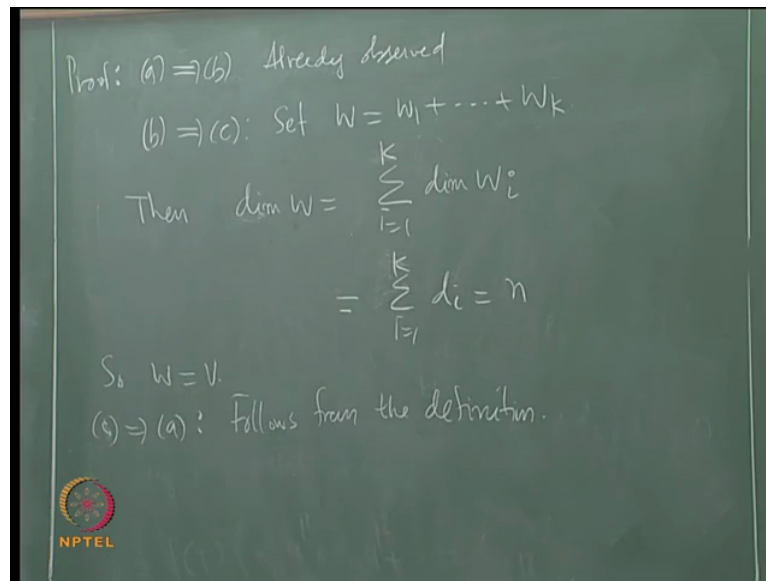 Proof: (a) ⇒ (b) Already observed
(b) ⇒ (c): Set W = W₁ + ---- + W_K
Then dim W = \sum_{i=1}^{K} dim W_i
= \sum_{i=1}^{K} d_i = n
So W = V.
(c) ⇒ (a): Follows from the definition.
NPTEL